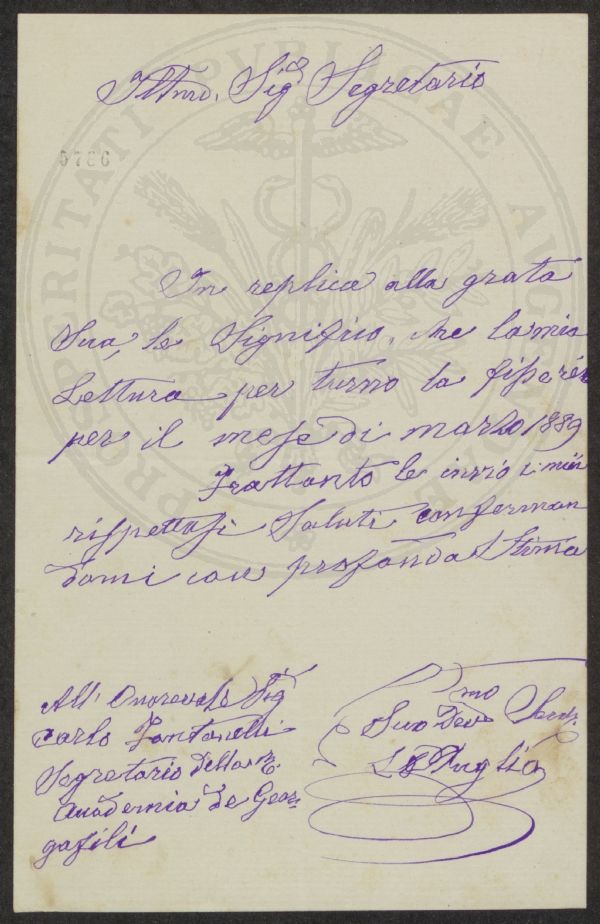 Illmo. Sig.e Segretario
5786
In replica alla grata
Sua, le Significo, che la mia
Lettura per turno la fisserò
per il mese di marzo 1889
Frattanto le invio i miei
rispettosi Saluti conferman
domi con profonda Stima
All' Onorevole Sig
Carlo Fontanelli
Segretario della R.
Accademia de Geor-
gofili
Suo Devmo Serv.
L. Puglia
PROSPERITATI PVBLICAE AVGENDAE